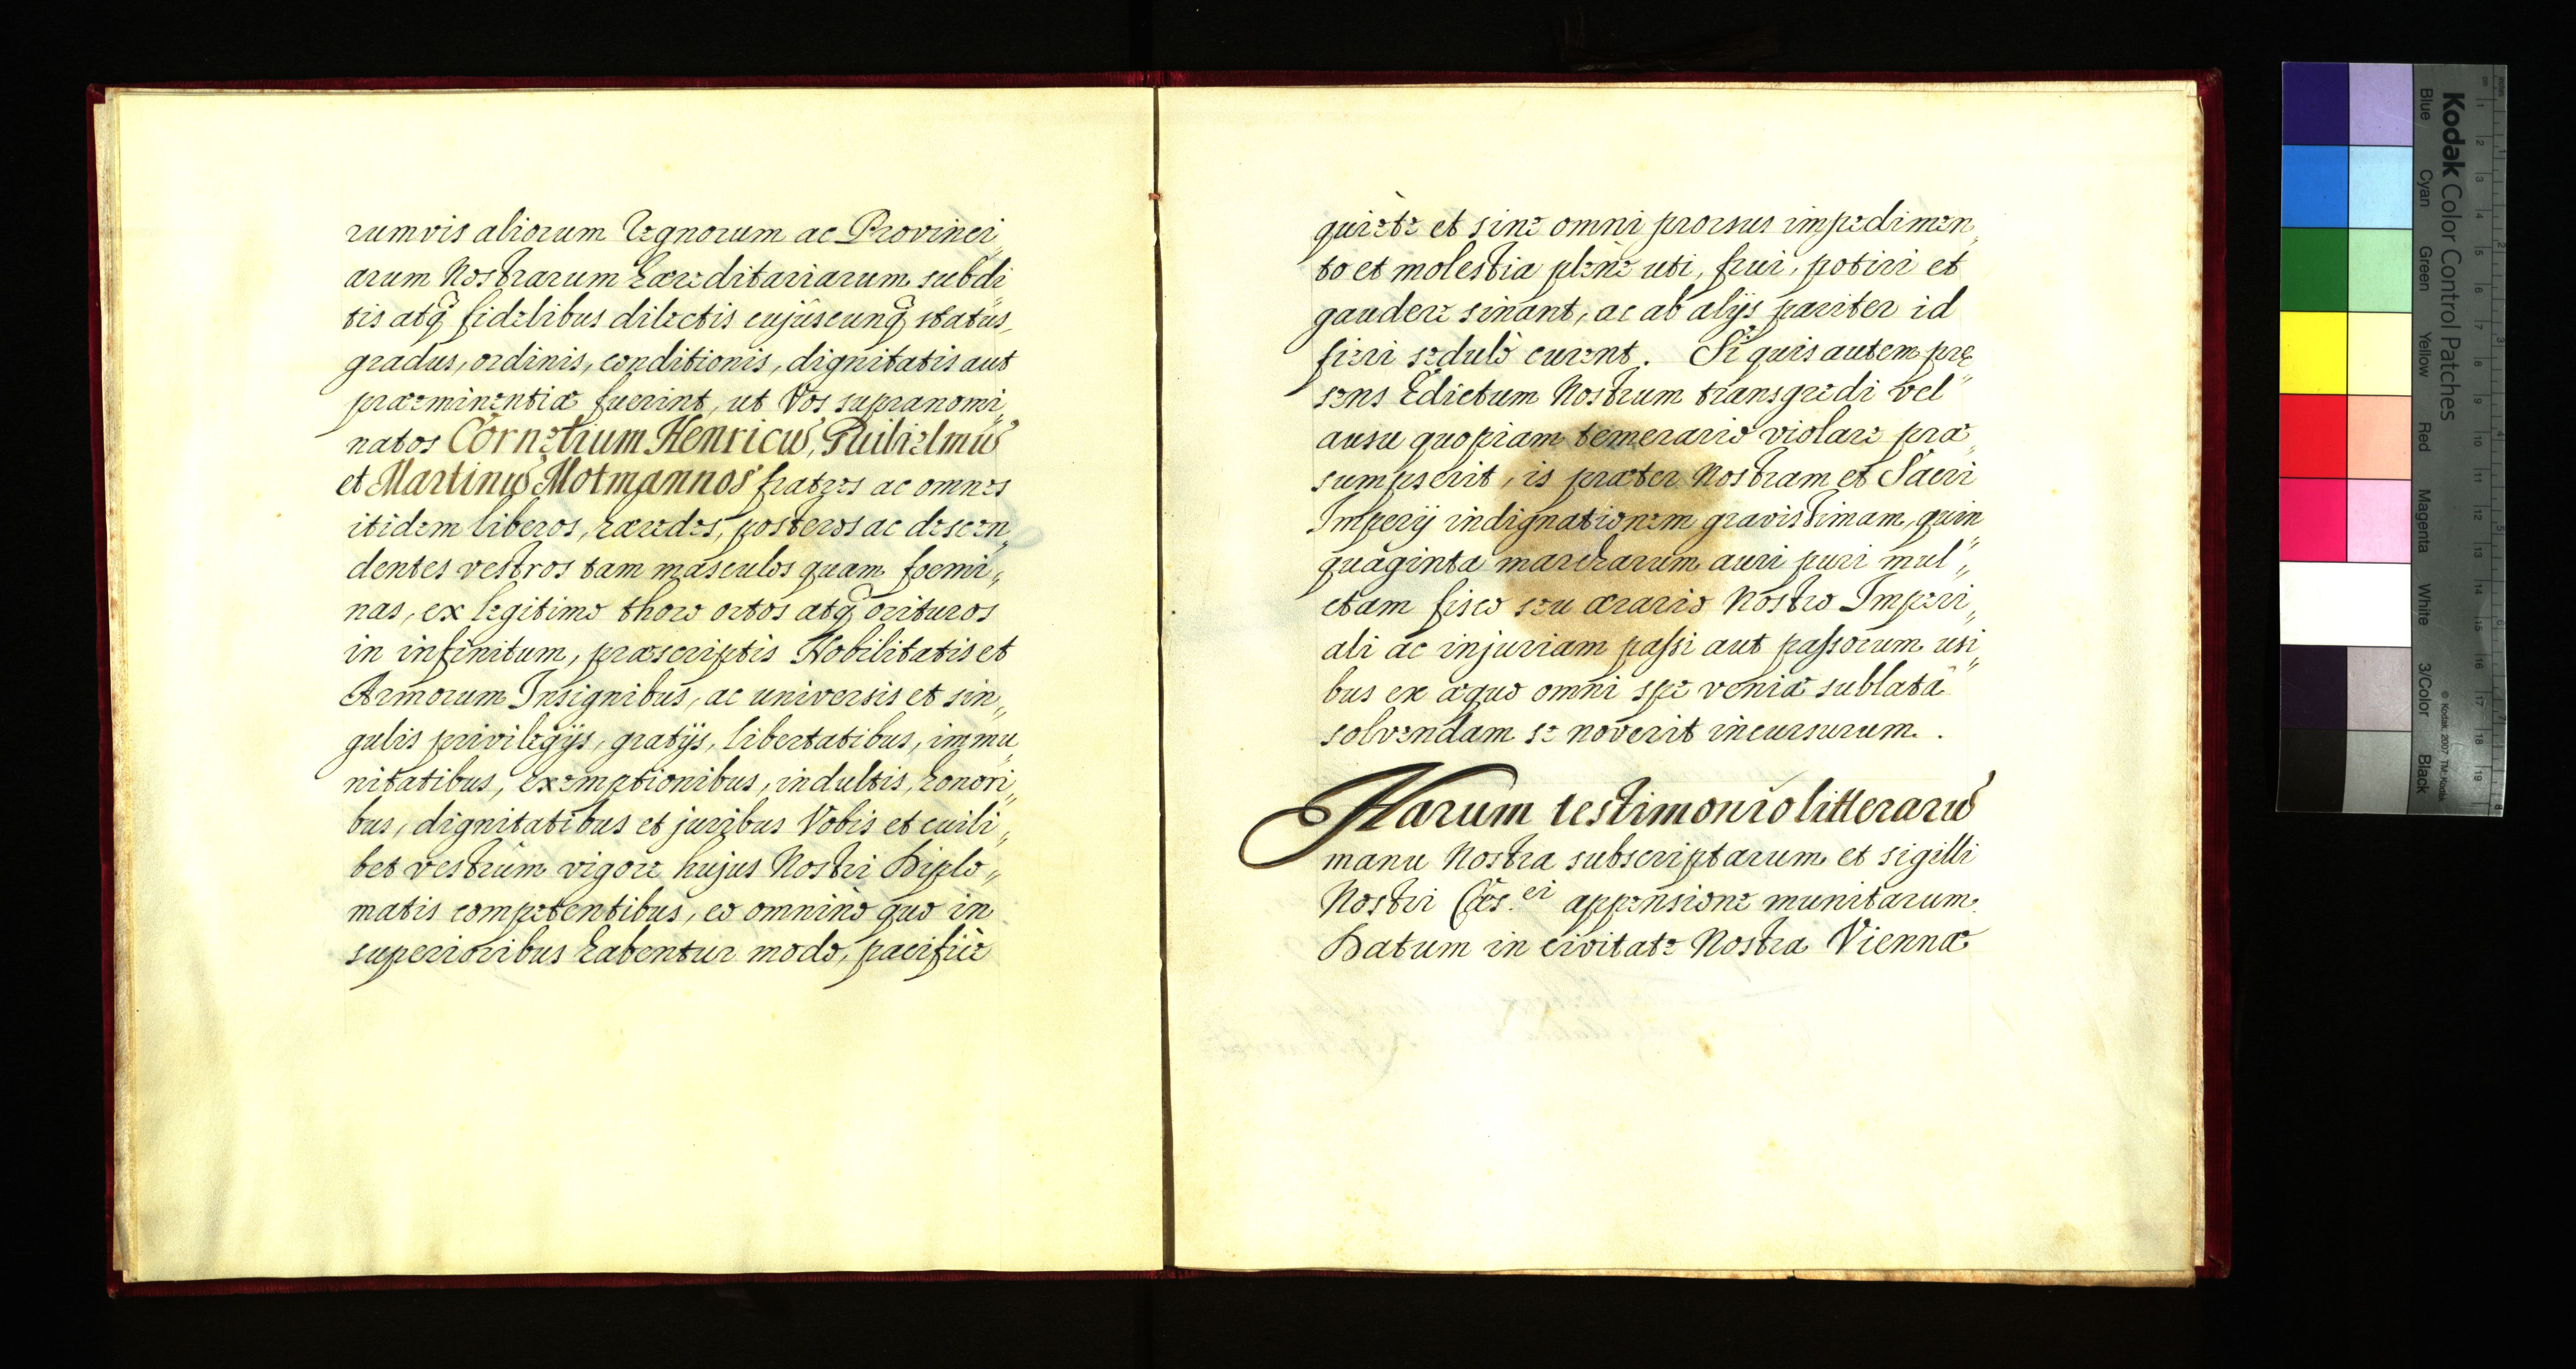 rumvis aliorum Regnorum ac Provinci„
arum Nostrarum hæreditariarum subdi„
tis atq̃ fidelibus dilectis cujuscunq̃ status,
gradus, ordinis, conditionis, dignitatis aut
præeminentiæ fuerint, ut Vos supranomi„
natos Cornelium Henricũ, Guilielmũ
et Martinũ Motmannos fratres ac omnes
itidem liberos, hæredes, posteros ac descen„
dentes vestros tam masculos quam foemi„
nas, ex legitimo thoro ortos atq̃ orituros
in infinitum, præscriptis Nobilitatis et
Armorum Insignibus, ac universis et sin„
gulis privilegijs, gratijs, libertatibus, immu„
nitatibus, exemptionibus, indultis, honori„
bus, dignitatibus et juribus Vobis et cuili„
bet vestrûm vigore hujus Nostri Diplo„
matis competentibus, eo omninò quo in
superioribus habentur modo, pacificè
quietè et sine omni prorsus impedimen„
to et molestia plenè uti, frui, potiri et
gaudere sinant, ac ab alijs pariter id
fieri sedulò curent. Si quis autem præ„
sens Edictum Nostrum transgredi vel
ausu quopiam temerario violare præ„
sumpserit, is præter Nostram et Sacri
Imperij indignationem gravissimam, quin„
quaginta marcharum auri puri mul„
ctam fisco seu ærario Nostro Imperi„
ali ac injuriam passi aut passorum usi„
bus ex æquo omni spe veniæ sublatâ
solvendam se noverit incursurum.
Harum testimonio litterarũ
manu Nostra subscriptarum et sigilli
Nostri Cæs.ei appensione munitarum.
Datum in civitate Nostra Viennæ
Kodak Color Control Patches
Blue Cyan Green Yellow Red Magenta White 3/Color Black
© Kodak, 2007 TM: Kodak